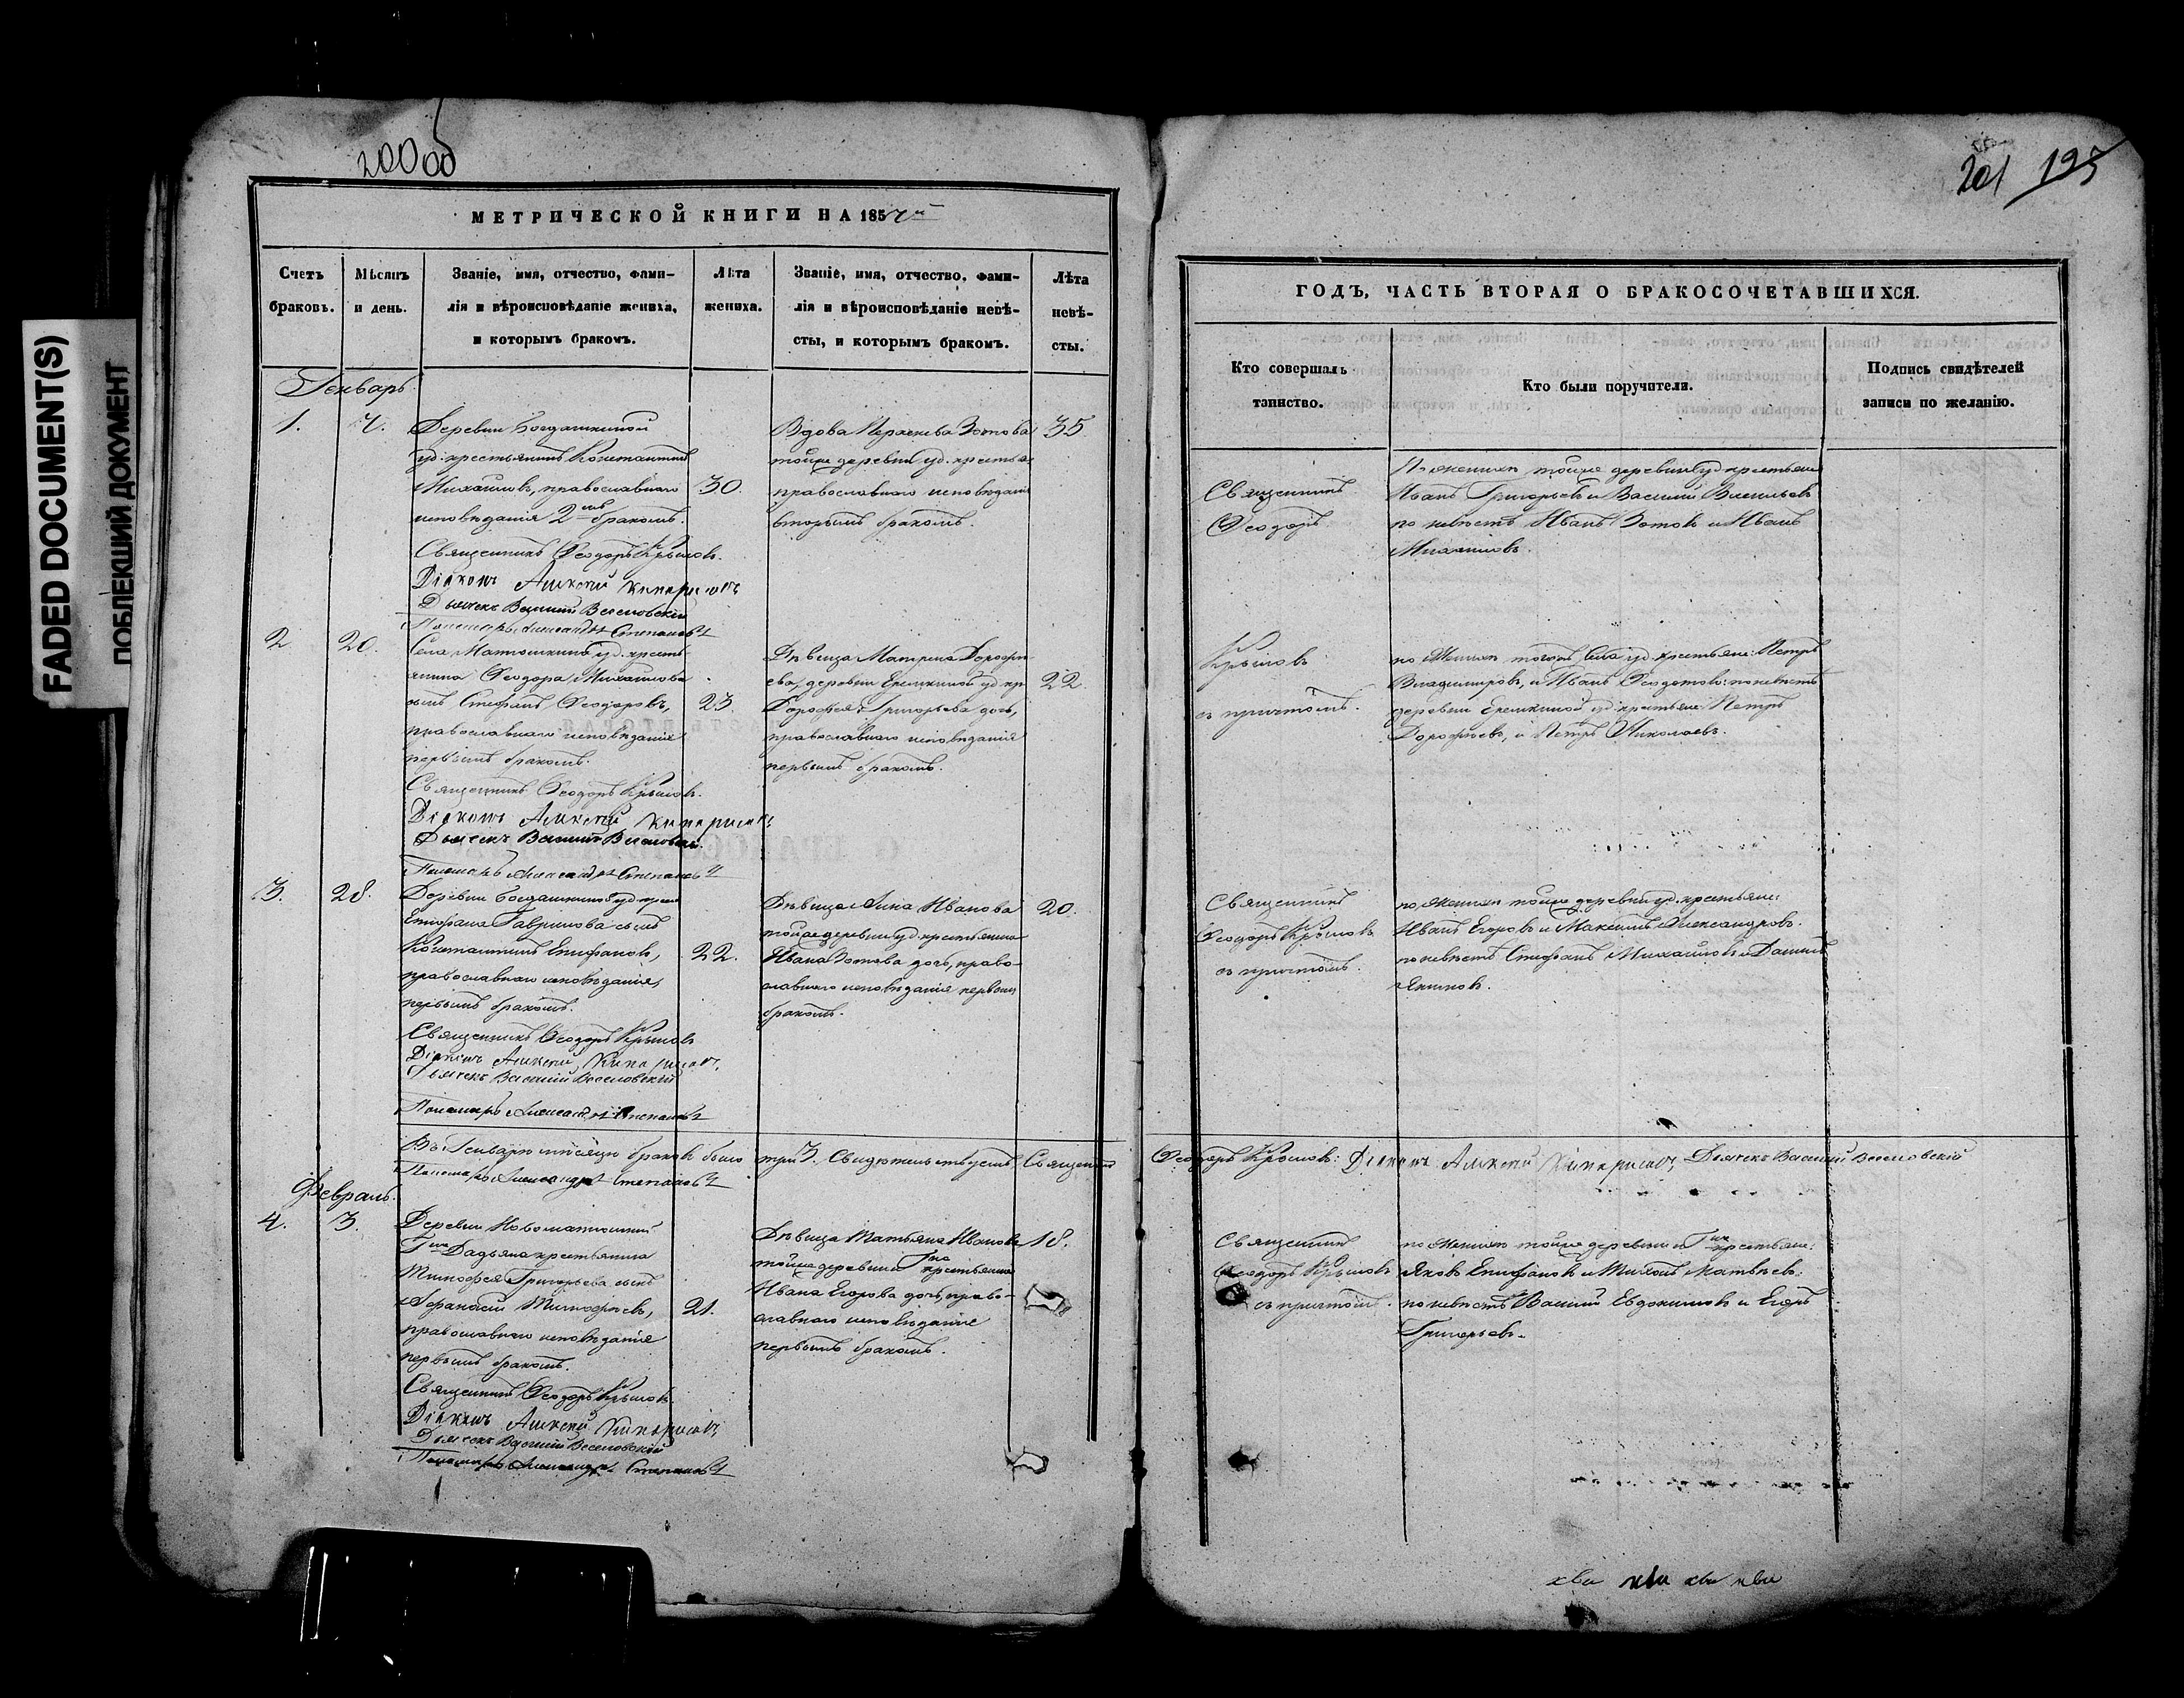 FADED DOCUMENT(S)
ПОБЛЕКШИЙ ДОКУМЕНТ
200 об
МЕТРИЧЕСКОЙ КНИГИ НА 185
Счетъ браковъ.
Мѣсяцъ и день.
Званіе, имя, отчество, фами-
лія и вѣроисповѣданіе жениха,
и которымъ бракомъ.
Лѣта
жениха.
Званіе, имя, отчество, фами-
лія и вѣроисповѣданіе невѣ-
сты, и которымъ бракомъ.
Лѣта
невѣ-
сты.
Генварь
1.
Деревни Богдашкиной
уд. крестьянинъ Константинъ
Михайловъ, православнаго
исповѣданія 2мъ бракомъ.
30.
Вдова Параскева Зотова
тойже деревни уд. крестьян
православнаго исповѣданія
вторымъ бракомъ.
35
Священникъ Ѳеодоръ Крыловъ
Діаконъ Алексѣй Кипарисовъ
Дьячекъ Василій Веселовскій
Пономарь Александръ Степановъ
2 20.
Села Матюшкина уд. кресть
янина Ѳеодора Михайлова
сынъ Стефанъ Ѳеодоровъ,
православнаго исповѣданія
первымъ бракомъ.
23.
Дѣвица Матрена Дорофѣ-
ева, деревни Еремкиной уд. кр
Дорофея Григорьева дочь,
православнаго исповѣданія
первымъ бракомъ.
22
Священникъ Ѳеодоръ Крыловъ.
Діаконъ Алексѣй Кипарисовъ
Дьячекъ Василій Веселовскій
Пономарь Александръ Степановъ
3. 28.
Деревни Богдашкиной уд. крес
Епифана Гаврилова сынъ
Константинъ Епифановъ,
православнаго исповѣданія,
первымъ бракомъ.
22.
Дѣвица Анна Иванова
тойже деревни уд. крестьянина
Ивана Зотова дочь, право-
славнаго исповѣданія первымъ
бракомъ.
20.
Священникъ Ѳеодоръ Крыловъ
Діаконъ Алексѣй Кипарисовъ
Дьячекъ Василій Веселовскій
Пономарь Александръ Степановъ
Въ Генварѣ мѣсяцѣ браковъ было три 3. Свидѣтельствуетъ Священникъ
Пономарь Александръ Степановъ
Февраль.
4. 3.
Деревни
крестьянина
Тимофея Григорьева сынъ
Афанасій Тимофѣевъ,
православнаго исповѣданія
первымъ бракомъ.
21.
Дѣвица Татьяна Иванова
тойже деревни и Гна крестьянина
Ивана Егорова дочь, право-
славнаго исповѣданія
первымъ бракомъ.
18.
Священникъ Ѳеодоръ Крыловъ
Діаконъ Алексѣй Кипарисовъ
Дьячекъ Василій Веселовскій
Пономарь Александръ Степановъ
201 195
ГОДЪ, ЧАСТЬ ВТОРАЯ О БРАКОСОЧЕТАВШИХСЯ.
Кто совершалъ
таинство.
Кто были поручители.
Подпись свидѣтелей
записи по желанію.
Священникъ
Ѳеодоръ
По женихѣ тойже деревни уд. крестьяне
Иванъ Григорьевъ и Василій Васильевъ
по невѣстѣ Иванъ Зотовъ и Иванъ
Михайловъ.
Крыловъ
съ причтомъ.
по женихѣ тогоже села уд. крестьяне: Петръ
Владимировъ, и Иванъ Ѳедотовъ: по невѣстѣ
деревни Еремкиной уд. крестьяне: Петръ
Дорофѣевъ, и Петръ Николаевъ.
Священникъ
Ѳеодоръ Крыловъ
съ причтомъ.
по женихѣ тойже деревни уд. крестьяне:
Иванъ Егоровъ и Максимъ Александровъ.
по невѣстѣ Стефанъ Михайловъ и
Ѳеодоръ Крыловъ: Діаконъ Алексѣй Кипарисовъ Дьячекъ Василій Веселовскій
Священникъ
Ѳеодоръ Крыловъ
съ причтомъ.
по женихѣ тойже деревни и Гна крестьяне:
Яковъ Епифановъ и Тихонъ Матвѣевъ:
по невѣстѣ Василій Евдокимовъ и Егоръ
Григорьевъ.